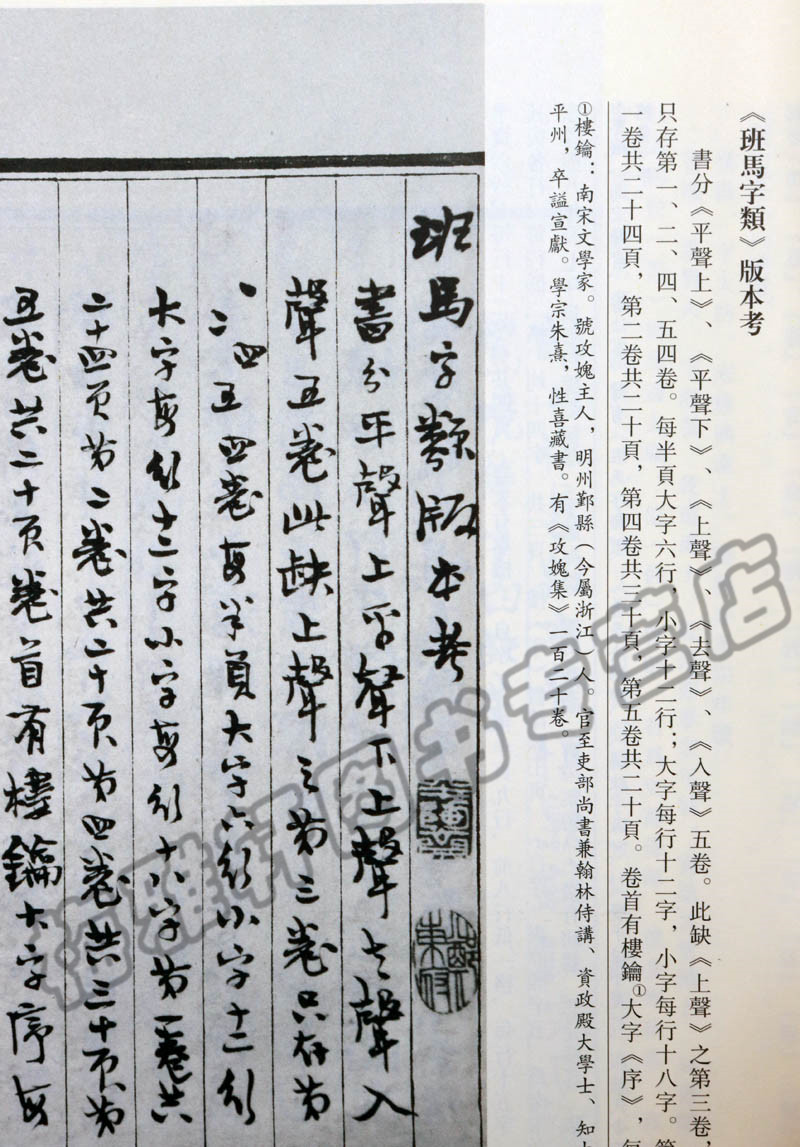 《班馬字類》版本考
書分《平聲上》、《平聲下》、《上聲》、《去聲》、《入聲》五卷。此缺《上聲》之第三卷，
只存第一、二、四、五四卷。每半頁大字六行，小字十二行；大字每行十二字，小字每行十八字。第
一卷共二十四頁，第二卷共二十頁，第四卷共三十頁，第五卷共二十頁。卷首有樓鑰①大字《序》，每
①樓鑰：南宋文學家。號攻媿主人，明州鄞縣（今屬浙江）人。官至吏部尚書兼翰林侍講、資政殿大學士、知太
平州，卒謚宣獻。學宗朱熹，性喜藏書。有《攻媿集》一百二十卷。
班馬字類版本考
書分平聲上平聲下上聲去聲入
聲五卷此缺上聲之第三卷只存第
一二四五四卷每半頁大字六行小字十二行
大字每行十二字小字每行十八字第一卷共
二十四页第二卷共二十页第四卷共三十页第
五卷共二十页卷首有樓鑰大字序每
雅轩图书专营店